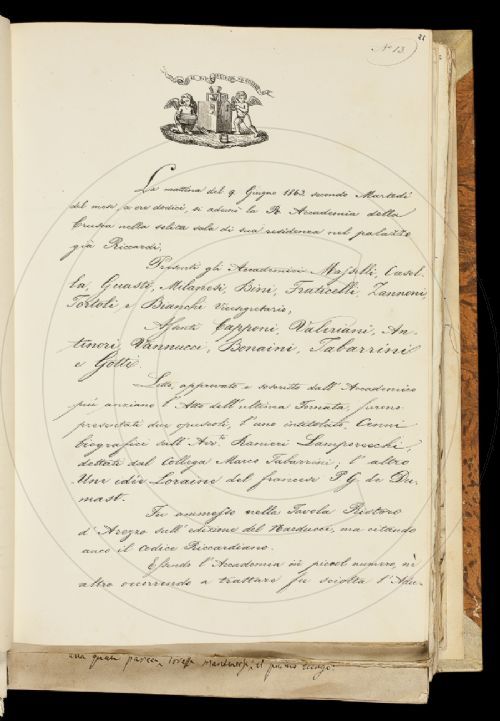 81
N° 13.
La mattina del 9 Giugno 1863 secondo Martedì
del mese, a ore dodici, si adunò la R. Accademia della
Crusca nella solita sala di sua residenza nel palazzo
già Riccardi.
Presenti gli Accademici Maselli, Casel-
la, Guasti, Milanesi, Bini, Fraticelli, Zannoni,
Tortoli e Bianchi Vicesegretario;
Assenti Capponi, Valeriani, An-
tinori, Vannucci, Bonaini, Tabarrini
e Gotti.
Letto, approvato e soscritto dall'Accademico
più anziano l'Atto dell'ultima Tornata, furono
presentati due opuscoli, l'uno intitolato, Cenni
biografici sull'Avv.to Ranieri Lamporecchi,
dettati dal Collega Marco Tabarrini; l'altro
Une idée Loraine del francese P. G. de Du-
mast.
Fu ammesso nella Tavola Ristoro
d'Arezzo sull'edizione del Narducci, ma citando
anco il codice Riccardiano.
Essendo l'Accademia in piccol numero, nè
altro occorrendo a trattare fu sciolta l'Adu-